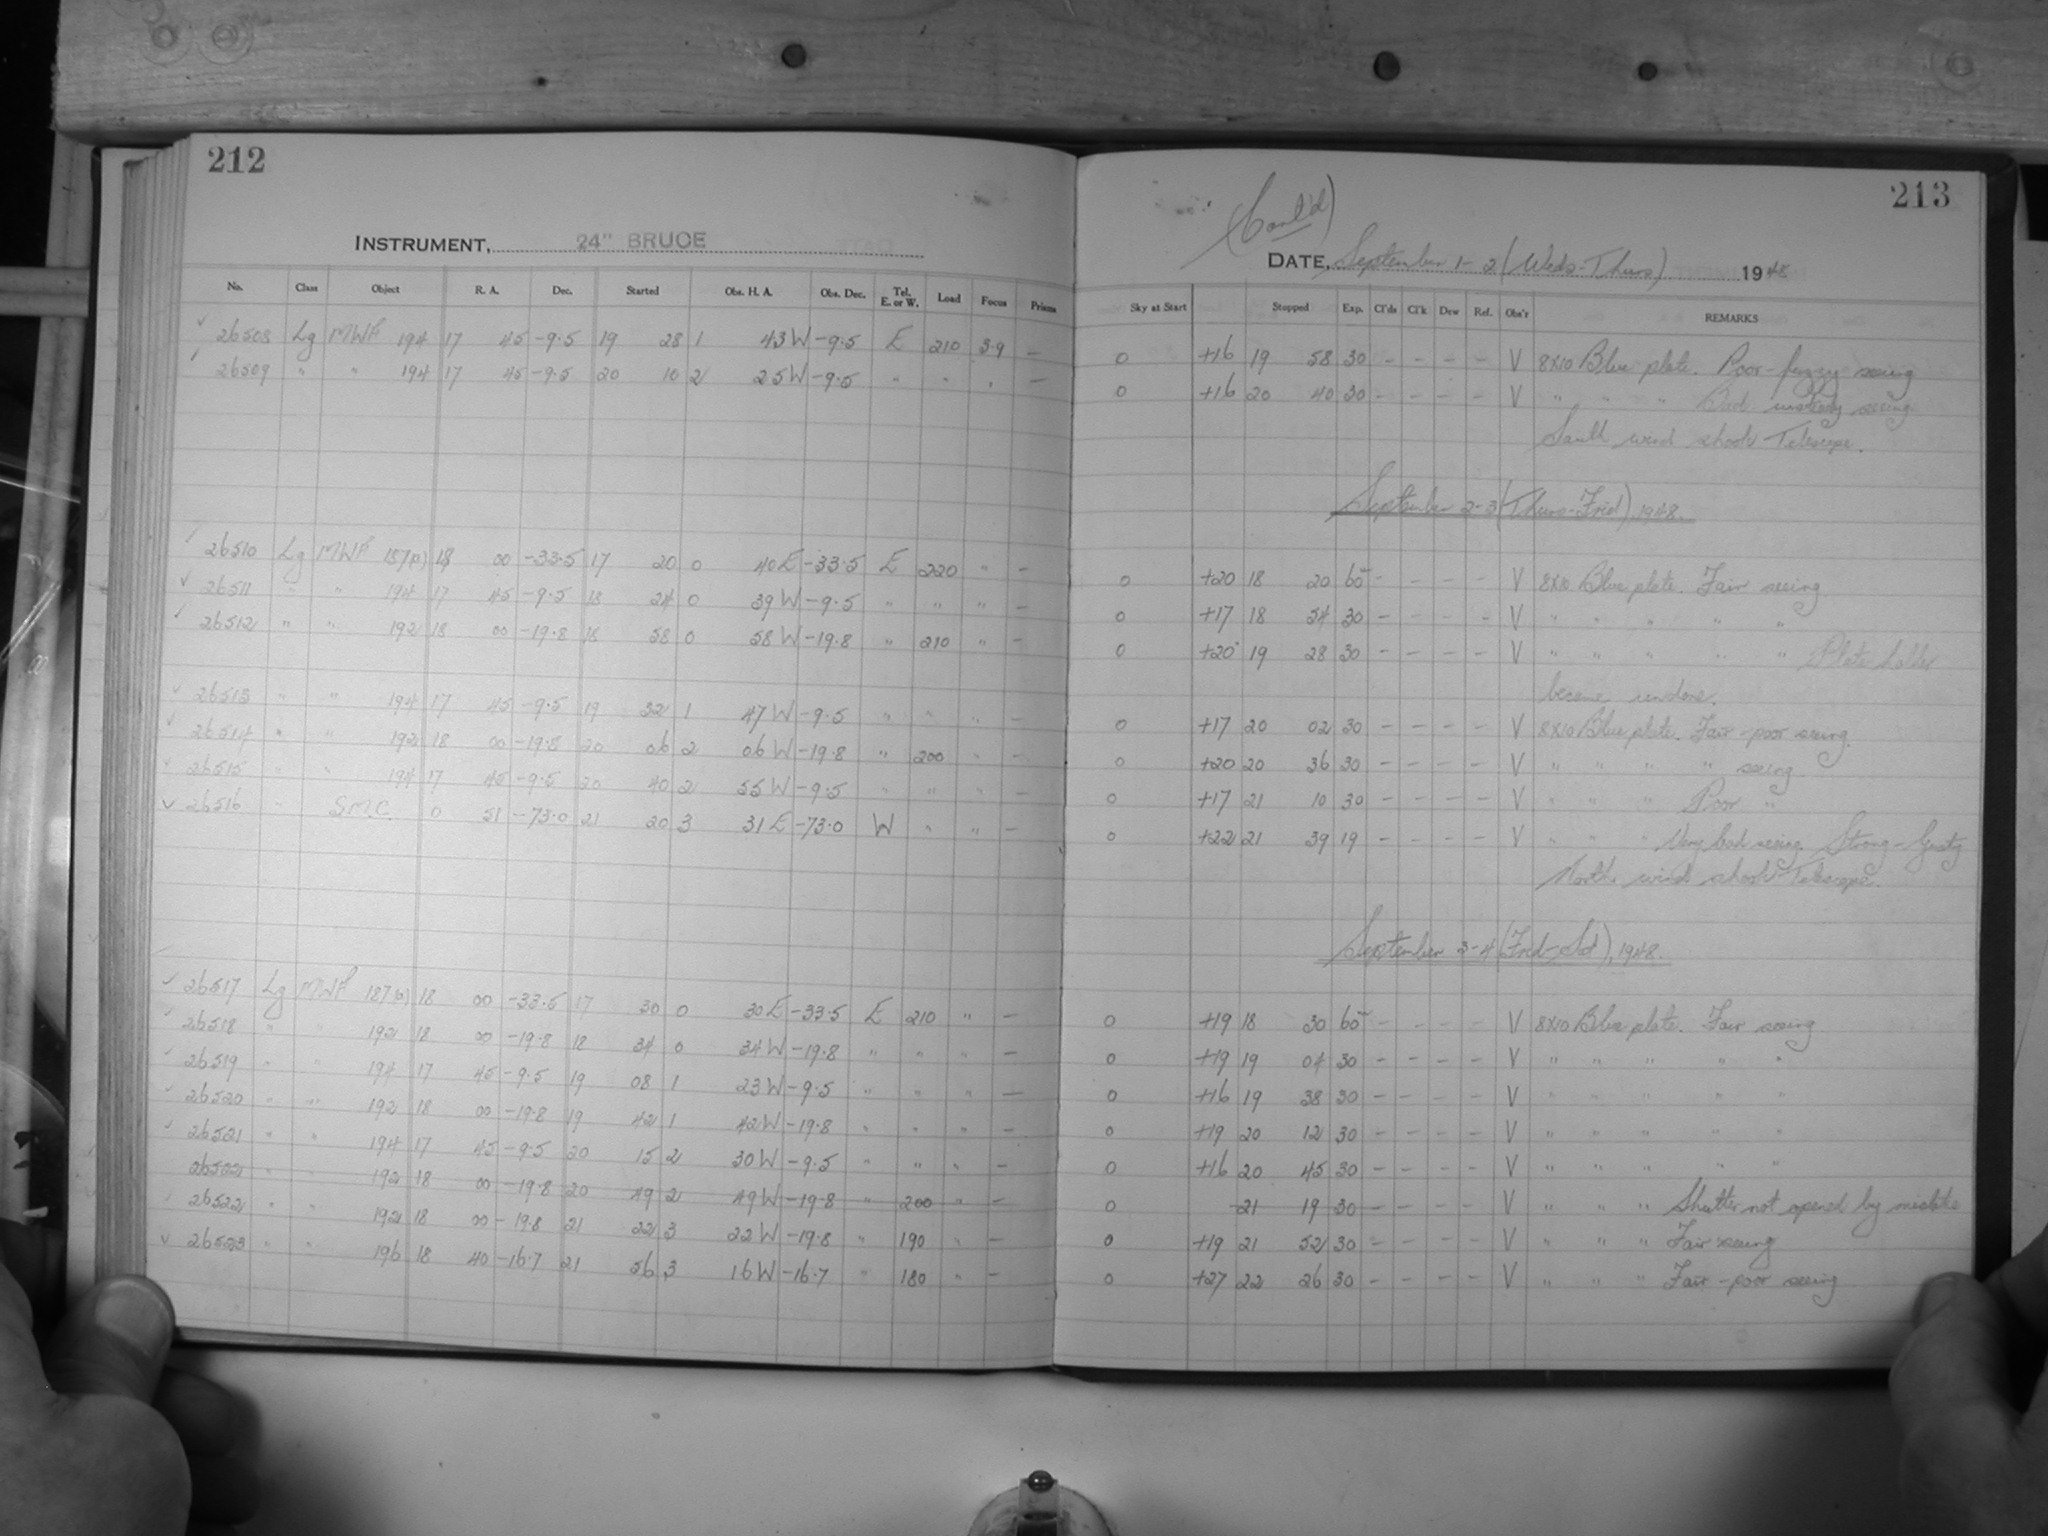 212
INSTRUMENT, 24" BRUCE
No. Class Object R. A. Dec. Started Obs. H. A. Obs. Dec. Tel. E. or W. Load Focus Prisms
✓ 26508 Lg MWF 194 17 45 -9.5 19 28 1 43W -9.5 E 210 3.9 -
✓ 26509 " " 194 17 45 -9.5 20 10 2 25W -9.5 " " " -
✓ 26510 Lg MWF 187(a) 18 00 -33.5 17 20 0 40E -33.5 E 220 " -
✓ 26511 " " 194 17 45 -9.5 18 24 0 39W -9.5 " " " -
✓ 26512 " " 192 18 00 -19.8 18 58 0 58W -19.8 " 210 " -
✓ 26513 " " 194 17 45 -9.5 19 32 1 47W -9.5 " " " -
✓ 26514 " " 192 18 00 -19.8 20 06 2 06W -19.8 " 200 " -
✓ 26515 " " 194 17 45 -9.5 20 40 2 55W -9.5 " " " -
✓ 26516 " S.M.C. 0 51 -73.0 21 20 3 31E -73.0 W " " -
✓ 26517 Lg MWF 187(a) 18 00 -33.5 17 30 0 30E -33.5 E 210 " -
✓ 26518 " " 192 18 00 -19.8 18 34 0 34W -19.8 " " " -
✓ 26519 " " 194 17 45 -9.5 19 08 1 23W -9.5 " " " -
✓ 26520 " " 192 18 00 -19.8 19 42 1 42W -19.8 " " " -
✓ 26521 " " 194 17 45 -9.5 20 15 2 30W -9.5 " " " -
26522 " " 192 18 00 -19.8 20 49 2 49W -19.8 " 200 " -
✓ 26522 " " 192 18 00 -19.8 21 22 3 22W -19.8 " 190 " -
✓ 26523 " " 196 18 40 -16.7 21 56 3 16W -16.7 " 180 " -
213
(Cont'd)
DATE, September 1-2 (Weds-Thurs) 1948
Sky at Start Stopped Exp. Cl'ds Cl'k Dew Ref. Obs'r REMARKS
0 +16 19 58 30 - - - - V 8x10 Blue plate. Poor-fuzzy seeing
0 +16 20 40 30 - - - - V " " " Bad unsteady seeing.
South wind shook Telescope.
September 2-3 (Thurs-Frid), 1948.
0 +20 18 20 60 - - - - V 8x10 Blue plate. Fair seeing
0 +17 18 54 30 - - - - V " " " " "
0 +20 19 28 30 - - - - V " " " " " Plate holder
became undone.
0 +17 20 02 30 - - - - V 8x10 Blue plate. Fair-poor seeing.
0 +20 20 36 30 - - - - V " " " " seeing
0 +17 21 10 30 - - - - V " " " Poor "
0 +22 21 39 19 - - - - V " " " Very bad seeing. Strong-Gusty
North wind shook Telescope.
September 3-4 (Frid-Sat), 1948.
0 +19 18 30 60 - - - - V 8x10 Blue plate. Fair seeing
0 +19 19 04 30 - - - - V " " " " "
0 +16 19 38 30 - - - - V " " " " "
0 +19 20 12 30 - - - - V " " " " "
0 +16 20 45 30 - - - - V " " " " "
0 - 21 19 30 - - - - V " " " Shutter not opened by mistake
0 +19 21 52 30 - - - - V " " " Fair seeing
0 +27 22 26 30 - - - - V " " " Fair-poor seeing